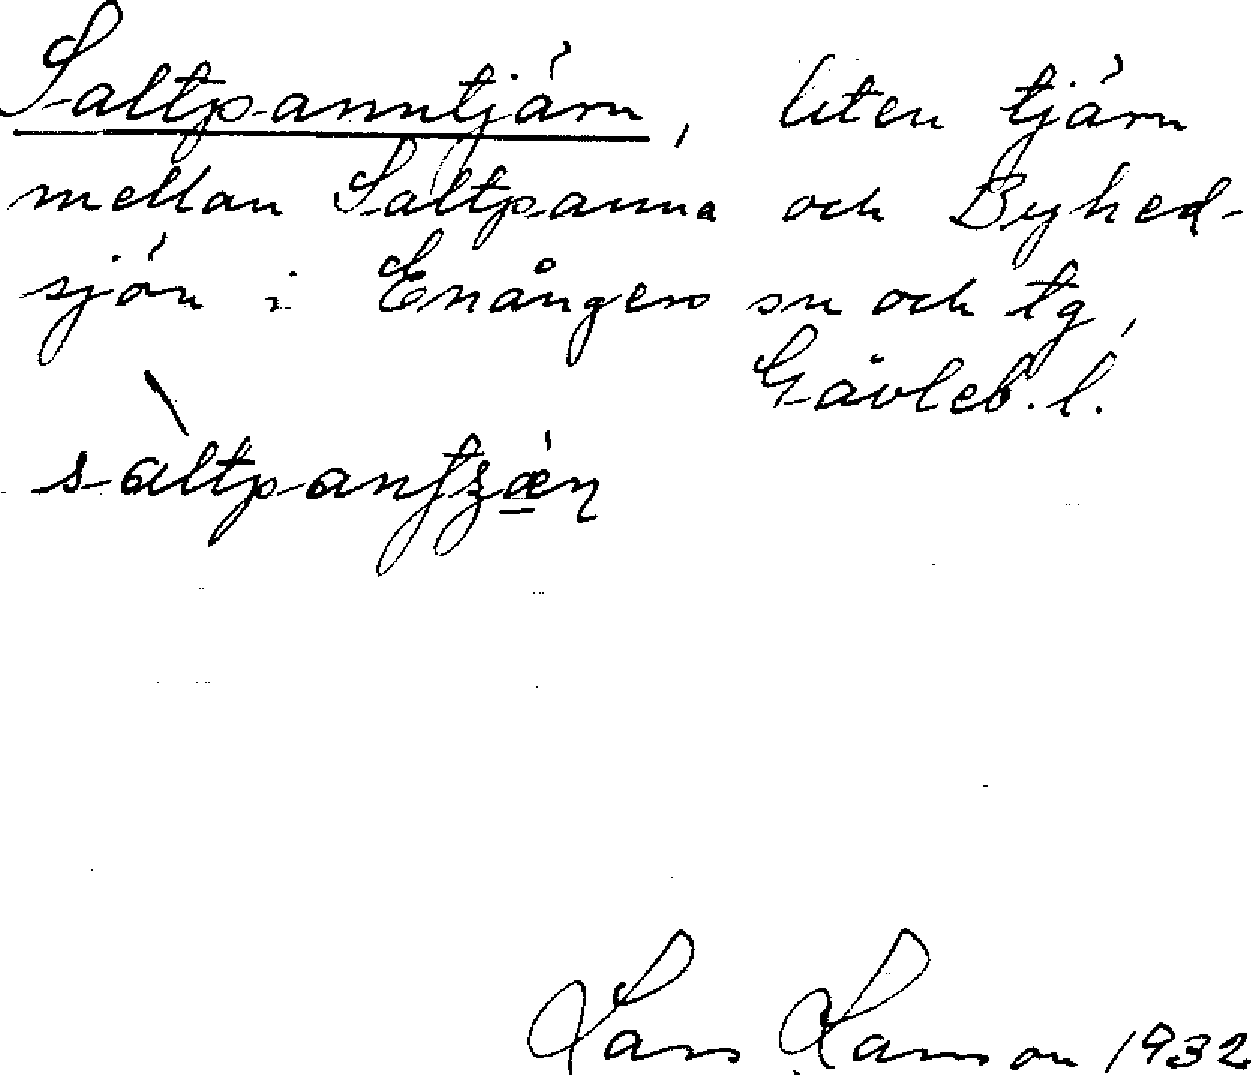 Saltpanntjärn, liten tjärn
mellan Saltpanna och Byhed-
sjön i Enångers sn och tg,
Gävleb. l.
Lars Larsson 1932